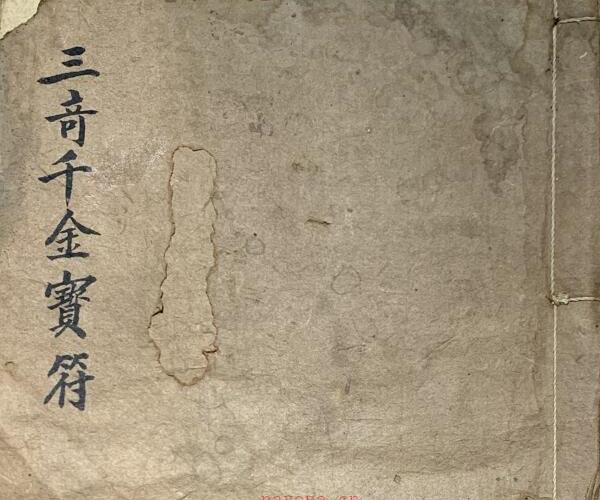 三奇千金寳符